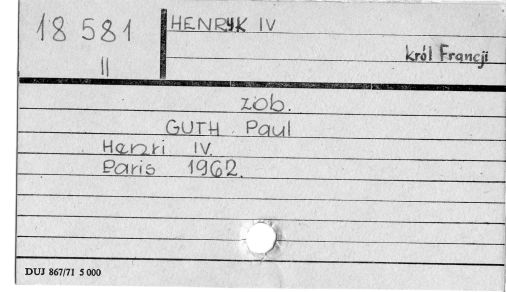 18 581
II
HENRYK IV
król Francji
zob.
GUTH Paul
Henri IV.
Paris 1962.
DUJ 867/71 5 000